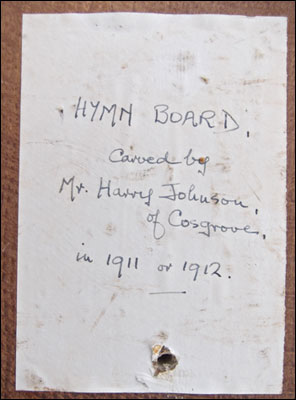 HYMN BOARD.
Carved by
Mr. Harry Johnson,
of Cosgrove,
in 1911 or 1912.